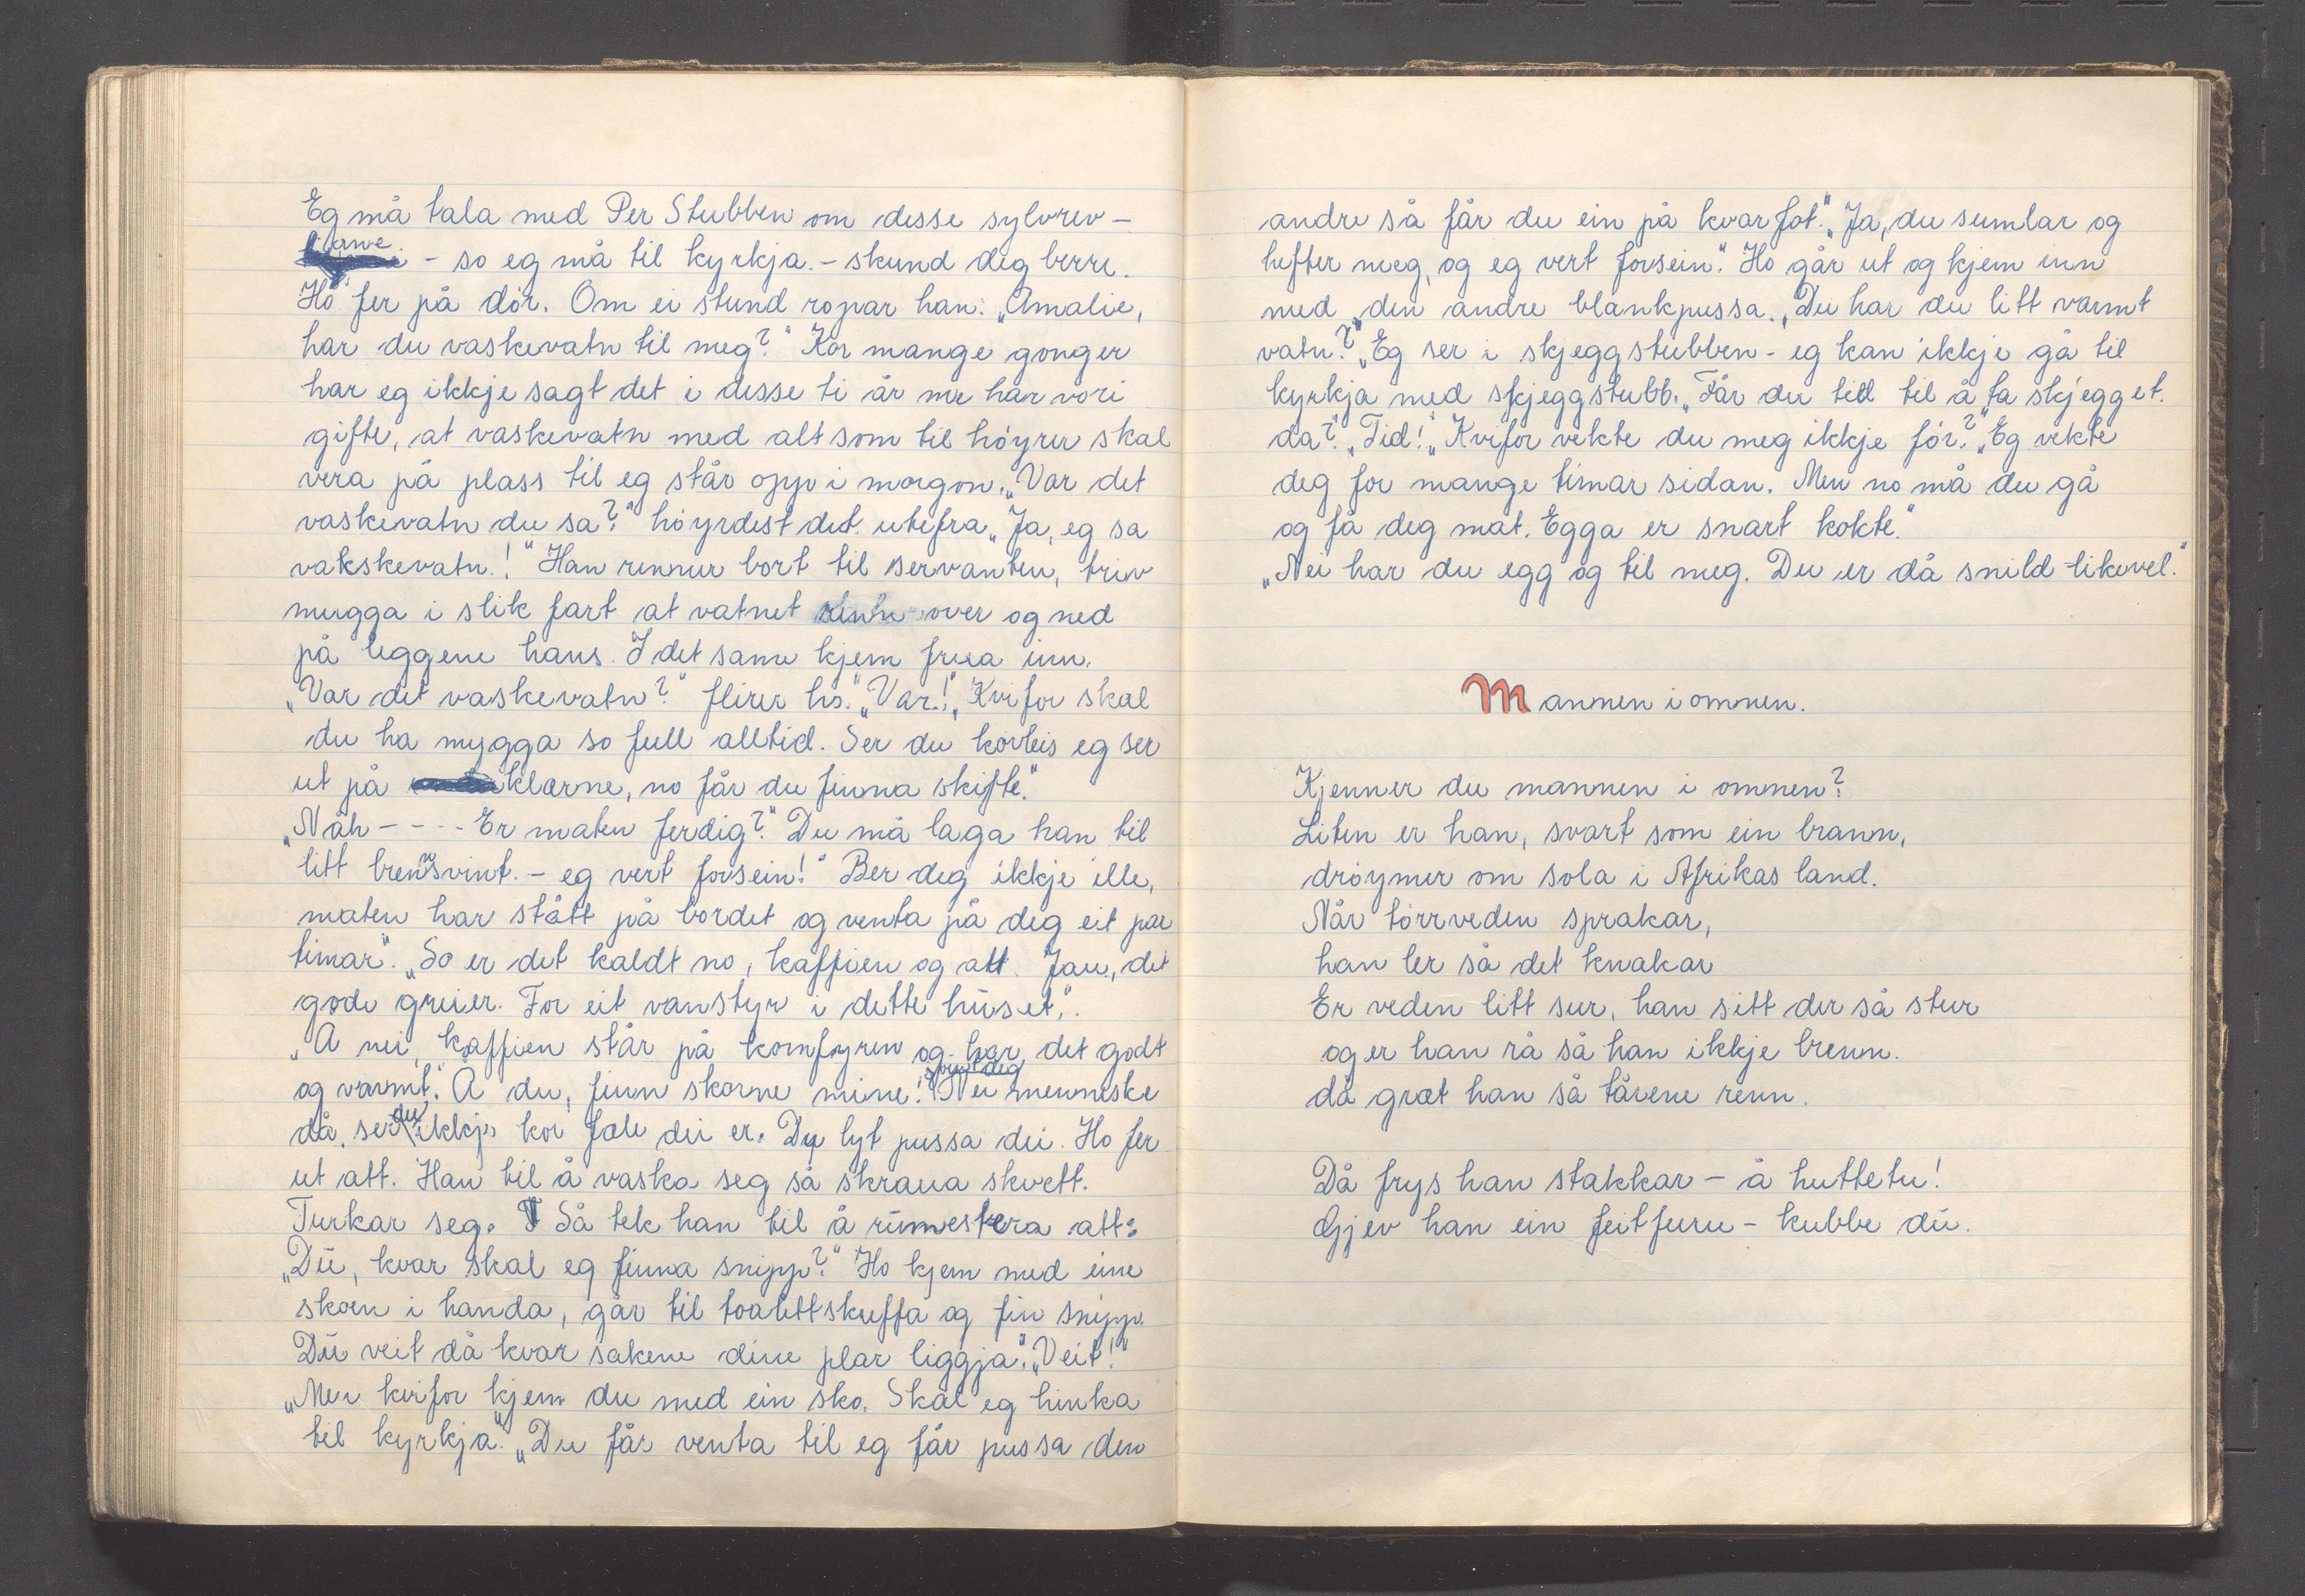 Eg må tala med Per Stubben om desse sylvrev-
ane - so eg må til kyrkja. - skund deg berre.
Ho fer på dör. Om ei stund ropar han: „Amalie,
har du vaskevatn til meg?" Kor mange gonger
har eg ikkje sagt det i desse ti år me har vori
gifte, at vaskevatn med alt som til höyrer skal
vera på plass til eg står opp i morgon. „Var det
vaskevatn du sa?" höyrdest det utefra „Ja, eg sa
vakskevatn.!" Han rennur bort til servanten, triv
mugga i slik fart at vatnet renn over og ned
på leggene hans. I det same kjem frua inn.
„Var det vaskevatn?" flirer ho. „Var!" „Kvifor skal
du ha mygga so full alltid. Ser du korleis eg ser
ut på klærne, no får du finna skifte."
„Näh---- Er maten ferdig?" Du må laga han til
litt brennsvint. - eg vert forsein!" Ber deg ikkje ille,
maten har stått på bordet og venta på deg eit par
timar". „So er det kaldt no, kaffien og alt. Jau, det
gode greier. For eit vanstyr i dette huset".
„Å nei, kaffien står på komfyren og har det godt
og varmt". Å du, finn skorne mine! „Nei menneske
då, ser du ikkje kor fæle dei er. Du lyt pussa dei. Ho fer
ut att. Han til å vaska seg så skraua skvett.
Turkar seg. Så tek han til å rumestera att:
„Du, kvar skal eg finna snipp?" Ho kjem med eine
skoen i handa, går til toalettskuffa og fin snipp.
Du veit då kvar sakene dine plar liggja". „Veit!"
„Men kvifor kjem du med ein sko. Skal eg hinka
til kyrkja". „Du får venta til eg får pussa den
andre så får du ein på kvar fot." „Ja, du sumlar og
hefter meg, og eg vert forsein". Ho går ut og kjem inn
med den andre blankpussa. „Du har du litt varmt
vatn?" „Eg ser i skjeggstubben - eg kan ikkje gå til
kyrkja med skjeggstubb. „Får du tid til å ta skjegget.
da?" „Tid!" „Kvifor vekte du meg ikkje för?" „Eg vekte
deg for mange timar sidan. Men no må du gå
og få deg mat. Egga er snart kokte."
„Nei har du egg og til meg. Du er då snild likevel."
Mannen i omnen.
Kjenner du mannen i omnen?
Liten er han, svart som ein brann,
dröymer om sola i Afrikas land.
Når törrveden sprakar,
han ler så det knakar
Er veden litt sur, han sitt der så stur
og er han rå så han ikkje brenn.
då græt han så tårene renn.
Då frys han stakkar - å huttetu!
Gjev han ein feit furu - kubbe du.